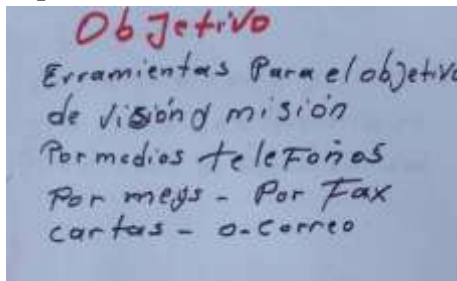 Objetivo
Erramientas Para el objetivo
de visión y misión
Por medios teleFoños
Por megs - Por Fax
cartas - o - correo